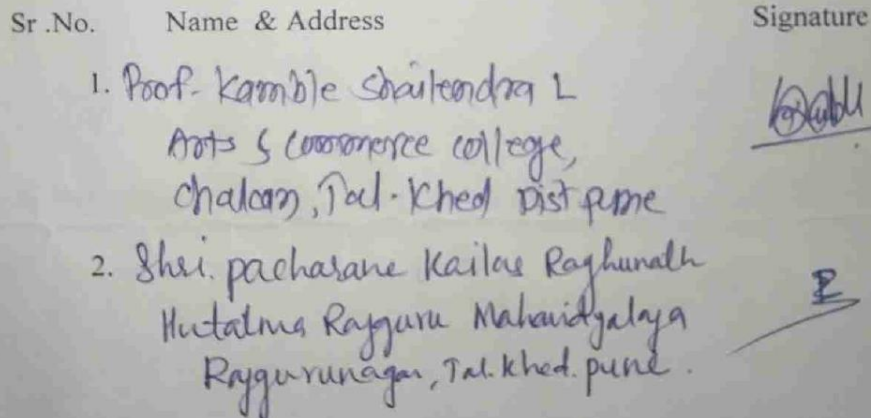 Sr .No. Name & Address Signature
1. Prof. Kamble Shailendra L
Arts & Commerce college,
Chakan, Tal. Khed Dist pune
2. Shri. pacharane Kailas Raghunath
Hutatma Rajguru Mahavidyalaya
Rajgurunagar, Tal. Khed. pune.